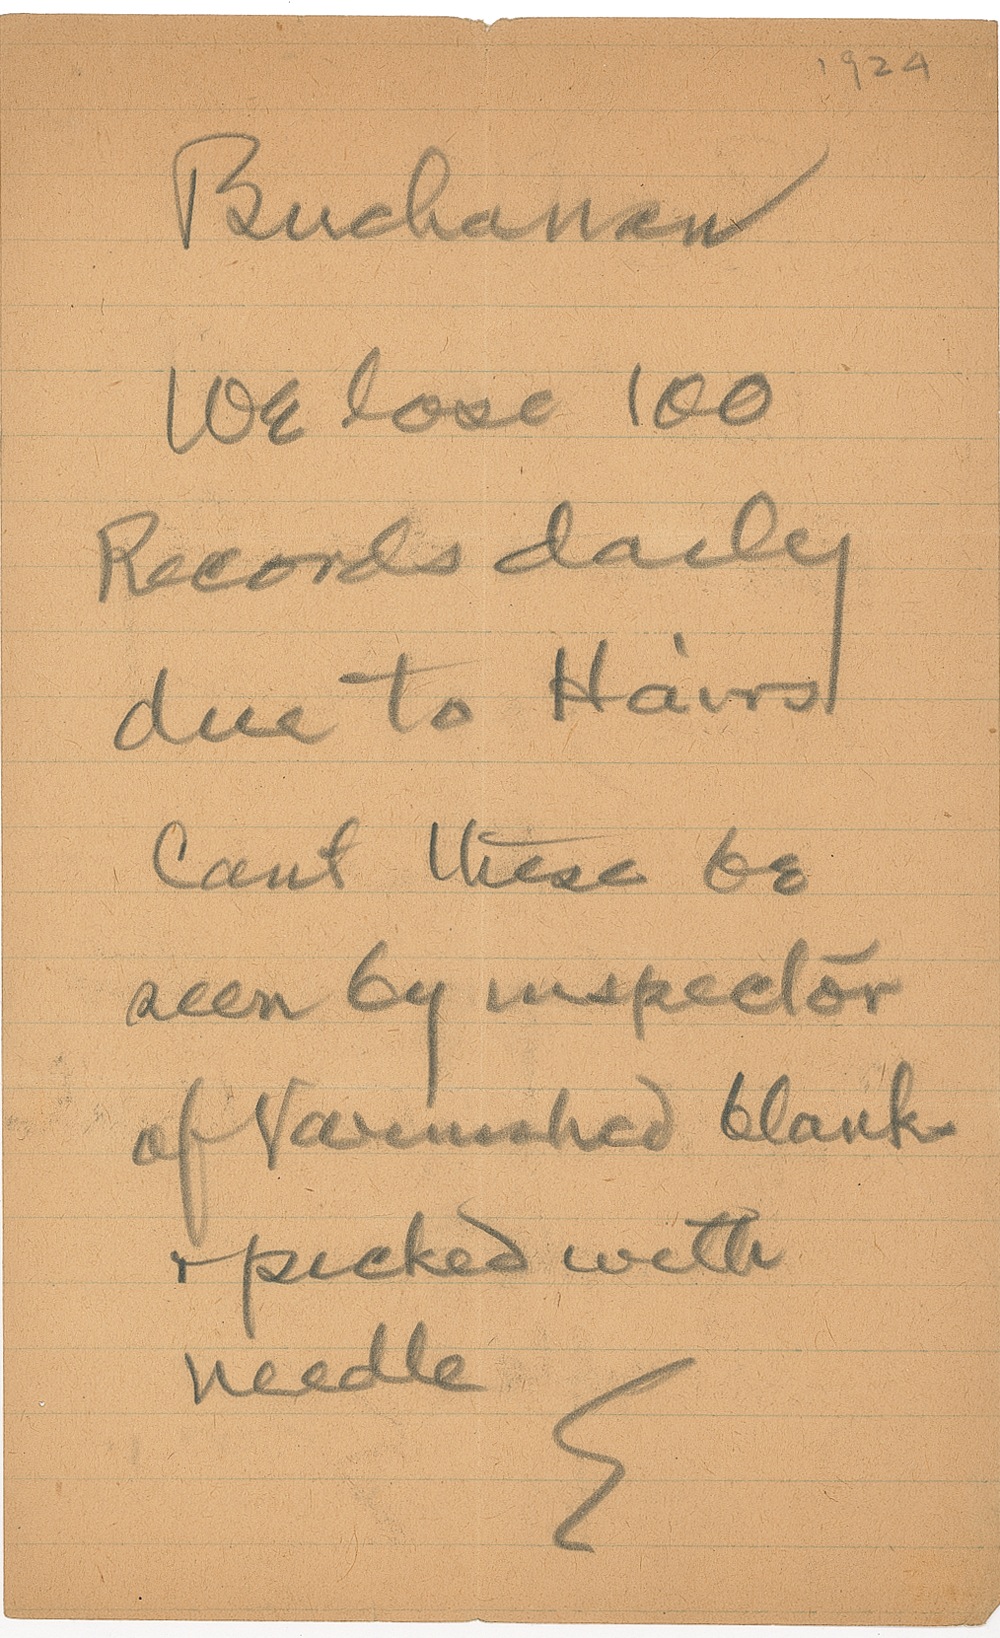 1924
Buchanan
We lose 100
Records daily
due to Hairs
Cant these be
seen by inspector
of Varnished blank
+ picked with
needle
E